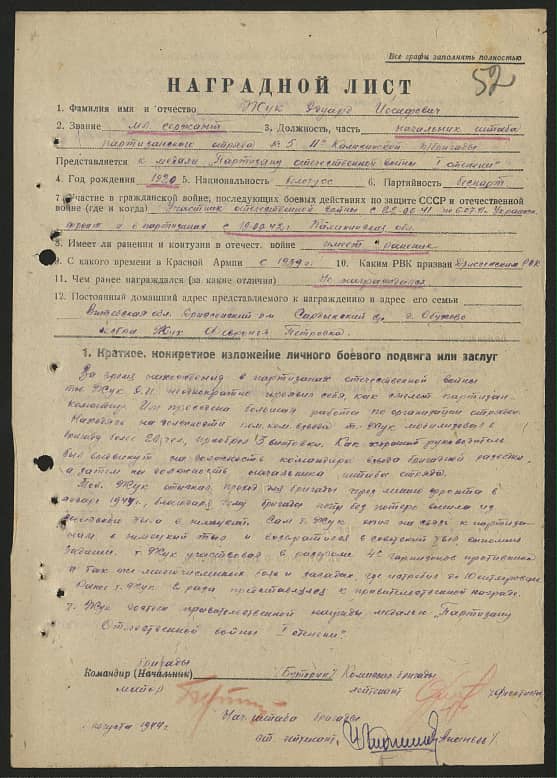 Все графы заполнять полностью
52
НАГРАДНОЙ ЛИСТ
1. Фамилия имя и отчество Жук Эдуард Иосафович
2. Звание мл. сержант 3. Должность, часть начальник штаба
партизанского отряда № 5 Калининской бригады
Представляется к медали „Партизану отечественной войны I степени"
4. Год рождения 1920 5. Национальность белорус 6. Партийность беспарт.
7. Участие в гражданской войне, последующих боевых действиях по защите СССР и отечественной
войне (где и когда) Участник отечественной войны с 22.06.41
фронт и в партизанах с Калининская обл.
8. Имеет ли ранения и контузии в отечест. войне имеет ранение
9. С какого времени в Красной Армии с 1939 г. 10. Каким РВК призван РВК
11. Чем ранее награждался (за какие отличия) Не награждался
12. Постоянный домашний адрес представляемого к награждению и адрес его семьи
Витебская обл. р-н д.
Жук Петровна.
1. Краткое, конкретное изложение личного боевого подвига или заслуг
За время нахождения в партизанах отечественной войны
тов. Жук неоднократно проявил себя, как смелый партизан-
командир. Им проведена большая работа по организации отряда.
Находясь на должности пом. ком. взвода т. Жук мобилизовал в
бригаду более 20 чел., приобрел 13 винтовок. Как хороший руководитель
был выдвинут на должность командира взвода бригадной разведки,
а затем на должность начальника штаба отряда.
Тов. Жук бригады через линию фронта в
январе 1944 г., благодаря чему бригада без потерь вышла из
Сам т. Жук на связь к партиза-
нам в немецкий тыл и возвратился в советский тыл выполнив
задание. т. Жук участвовал в разгроме 4х гарнизонов противника
а так же многочисленных боях и засадах, где истребил до 10 гитлеровцев.
Ранее т. Жук 2 раза представлялся к правительственной награде.
т. Жук достоин правительственной награды медалью „Партизану
Отечественной войны I степени".
Бригады
Командир (Начальник) Комиссар бригады
майор лейтенант
Нач. штаба бригады
августа 1944 г. ст. лейтенант